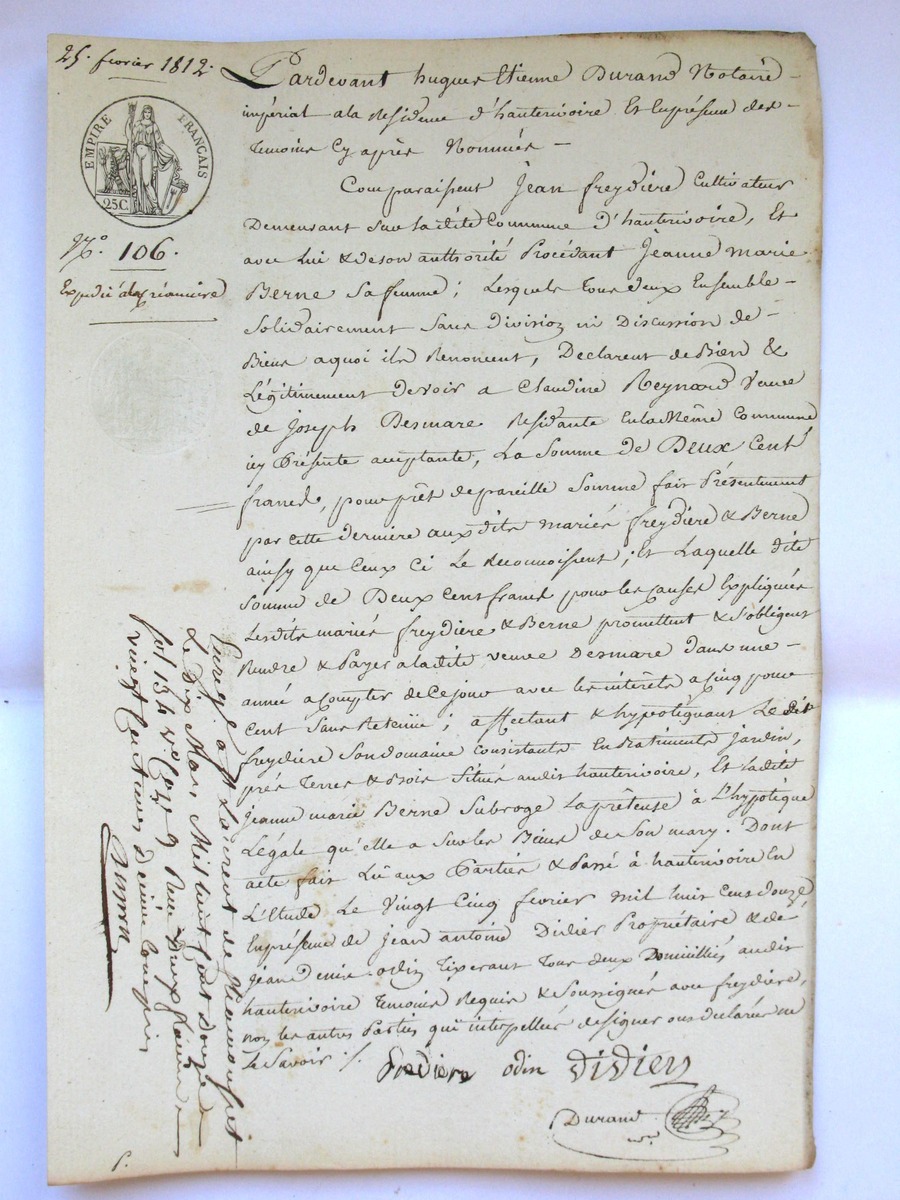 25. fevrier 1812.
EMPIRE FRANÇAIS
25C.
N.° 106.
Expédié à la créancière
Pardevant hugues Etienne Durand Notaire
impérial ala Résidence d'hauterivoire Et Enprésence des
temoins Cy après Nommés
Comparaissent Jean freydiere Cultivateur
Demeurant Sur ladite Commune d'hauterivoire, Et
avec Lui & de son authorité Procédant Jeanne Marie
Berne Safemme ; Lesquels tous deux Ensemble
Solidairement Sans division ni Discussion de
Biens aquoi ils Renoncent, Déclarent de Bien &
Légitimement devoir a Claudine Reynard Veuve
de Joseph Desmare Résidante Enla Même Commune
icy Présente acceptante, La Somme de Deux Cent
francs, pour prêt de pareille Somme fait Présentement
par cette derniere aux dits mariés freydiere & Berne
ainsy que Ceux Ci Le Reconnoissent ; Et Laquelle dite
Somme de Deux Cent francs pour les Causes Expliquées
Lesdits mariés freydiere & Berne promettent & S'obligent
Rendre & Payer aladite veuve Desmare Dans une
année a Compter de Ce jour avec les intérêts a Cinq pour
Cent Sans Retenue ; affectant & hypotéquant Le dit
freydiere Son domaine Consistants En Batiments Jardin,
prés Terres & Bois Situés audit hauterivoire, Et ladite
Jeanne marie Berne Subroge La prêteuse à L'hypotéque
Légale qu'elle a Sur les Biens de Son mary. Dont
acte fait Lû aux Parties & Passé à hauterivoire En
L'Etude Le vingt Cinq fevrier mil huit Cent douze
Enprésence de Jean antoine Didier Propriétaire & de
Jean odin Tixerant tous deux Domiciliés audit
hauterivoire temoins Requis & Soussignés avec freydiere,
non les autres Parties qui interpellées de signer ont déclarées ne
Le Savoir ./.
odin DIDIER
Durand
Enreg.é à St Laurent de
Le Dix Mars Mil huit Cent douze
fol 134 V.° C. 9 Reçu Deux francs
vingt Centimes dixième Compris